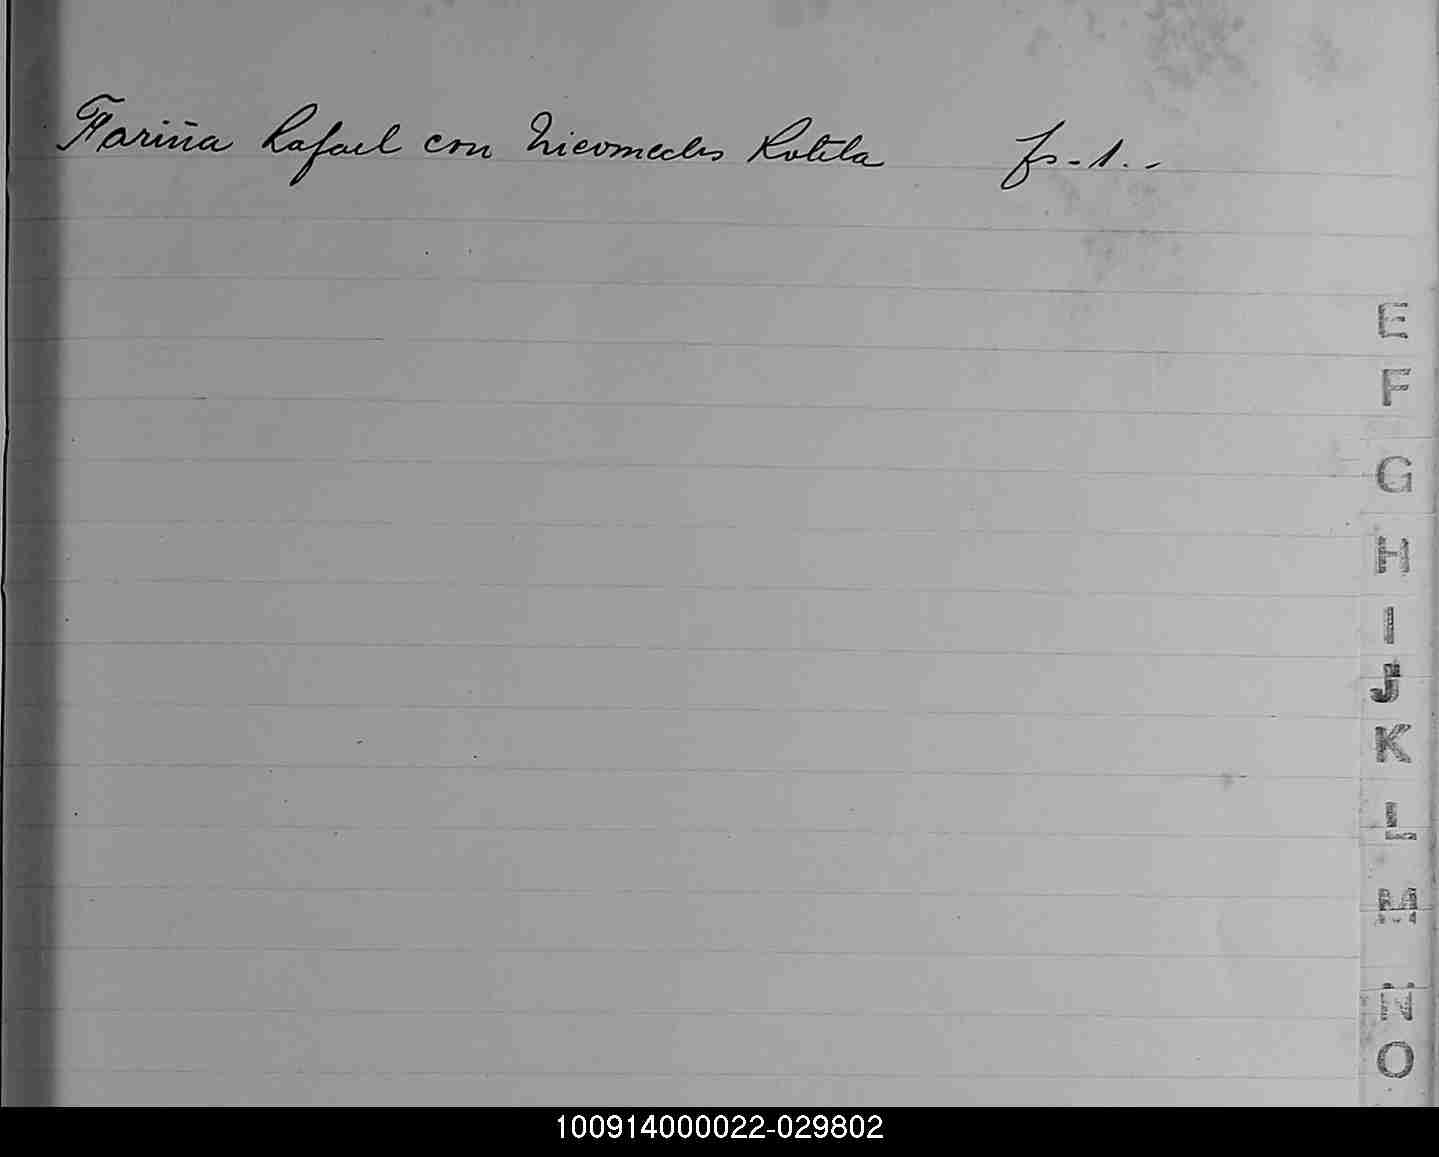 Fariña Rafael con Nicomedes Rotela fs-1.-
E
F
G
H
I
J
K
L
M
N
O
100914000022-029802